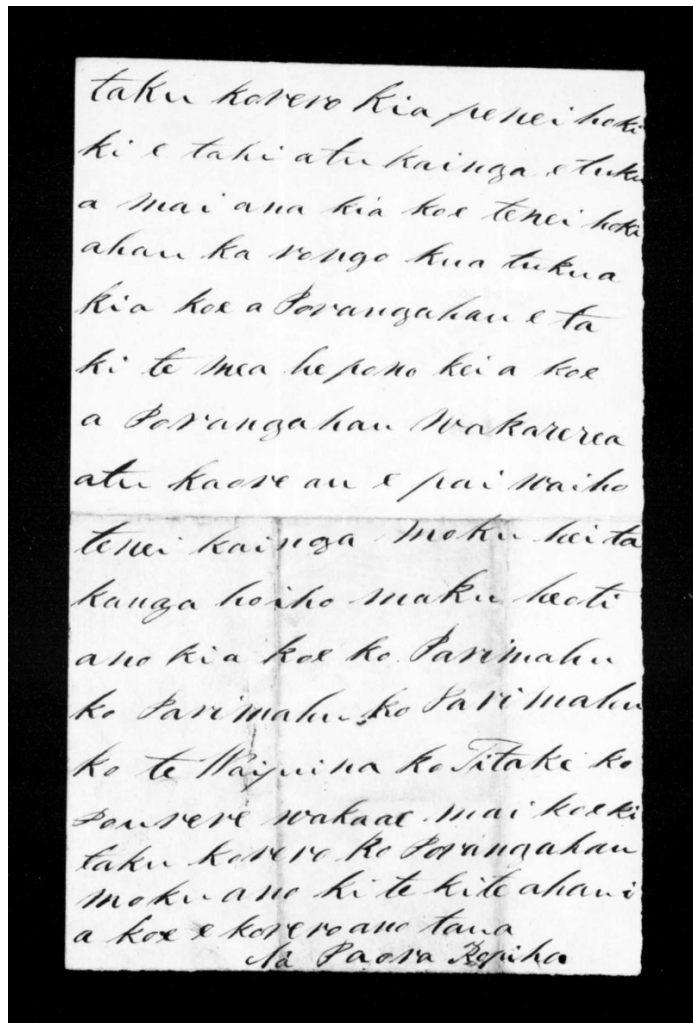 taku korero kia penei hoki
ki e tahi atu kainga e tuku
a mai ana kia koe tenei hoki
ahau ka rongo kua tukua
kia koe a Porangahau e ta
ki te mea he pono kei a koe
a Porangahau wakarerea
atu kaore au e pai waiho
tenei kainga moku hei ta
kanga hoiho maku heoti
ano ki a koe ko Parimahu
ko Parimahu ko Parimahu
ko te Waipuina ko Titaki ko
Pourere wakaae mai koe ki
taku korero ko Porangahau
moku ano ki te kite ahau i
a koe e korero ano taua
Na Paora Ropiha